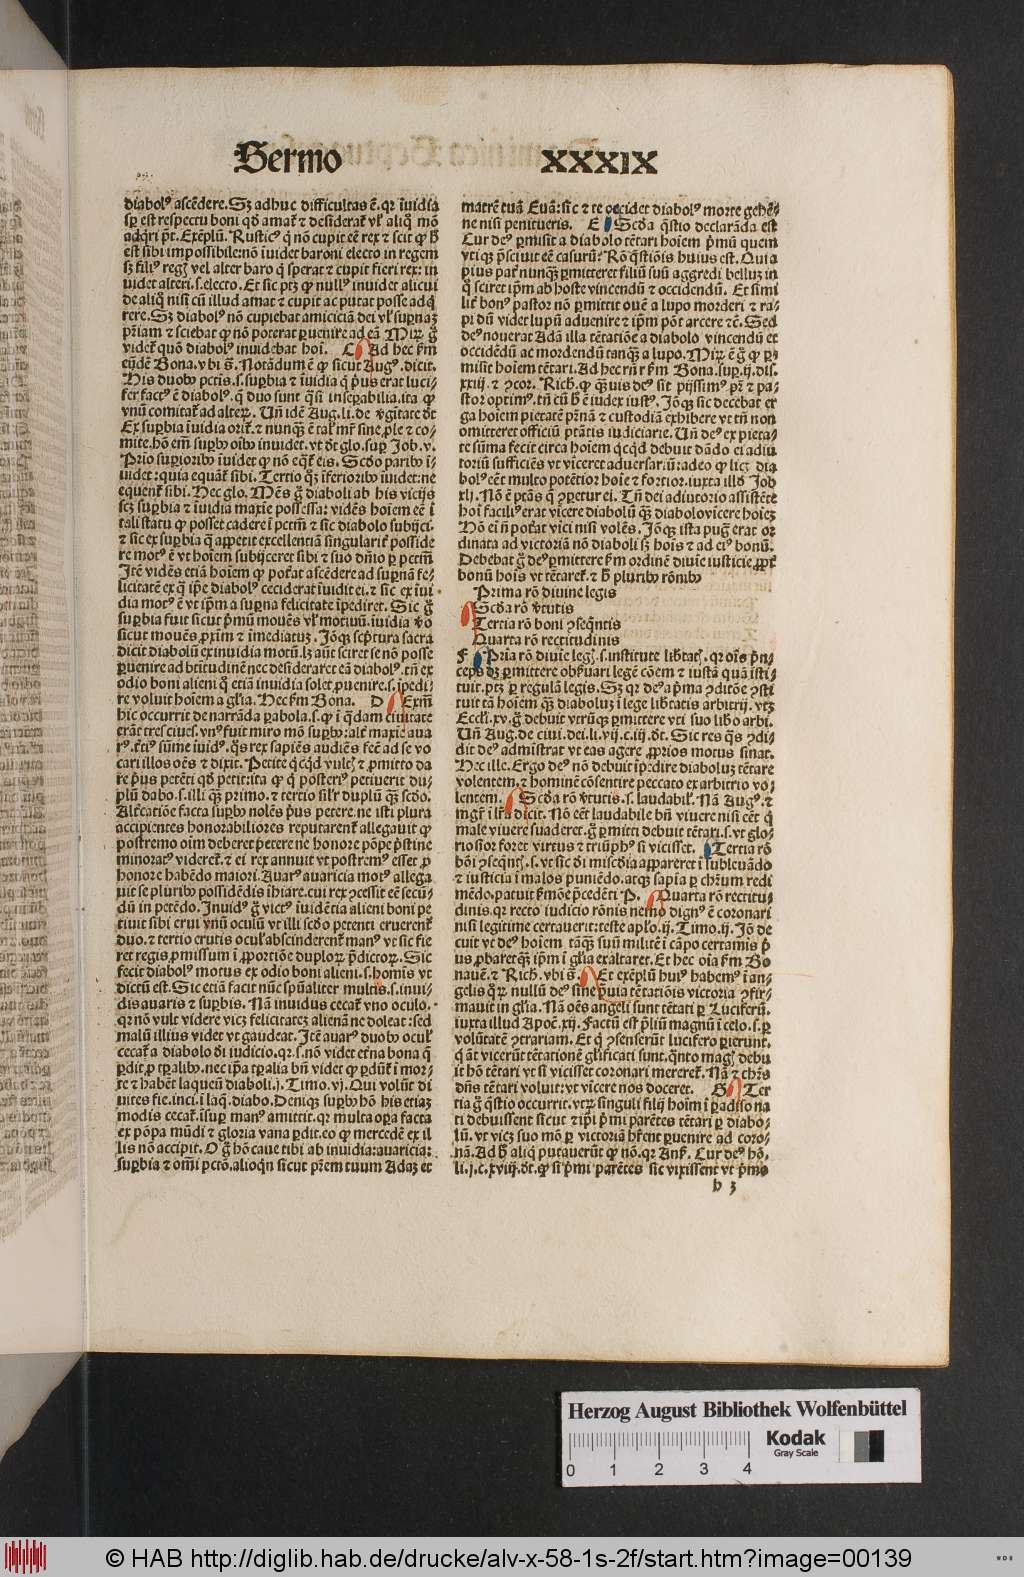 Sermo XXXIX
diabolꝰ ascẽdere. Sꝫ adhuc difficultas ẽ. qꝛ ĩuidia
sꝑ est respectu boni qđ amat̃ ⁊ desiderat̃ vł aliq̃ mõ
adq̃ri põt. Exẽplũ. Rusticꝰ q̃ nõ cupit eẽ rex ⁊ scit ꝙ h̃
est sibi impossibile: nõ ĩuidet baroni electo in regem
sꝫ filiꝰ regꝭ vel alter baro q̃ sperat ⁊ cupit fieri rex: in
uidet alteri. s. electo. Et sic ptꝫ ꝙ nullꝰ inuidet alicui
de aliq̃ nisi cũ illud amat ⁊ cupit ac putat posse adq̃
rere. Sꝫ diabolꝰ nõ cupiebat amiciciã dei vł suꝑnaꝫ
pr̃iam ⁊ sciebat ꝙ nõ poterat ꝑuenire ad eã Miꝝ g̃
videt̃ quõ diabolꝰ inuidebat hoĩ. C Ad hec ẜm
eũdẽ Bona. vbi s̃. Notãdum ẽ ꝙ sicut Augꝰ. dicit.
His duobꝰ pctis. s. suꝑbia ⁊ ĩuidia q̃ p̃us erat luci-
fer factꝰ ẽ diabolꝰ. q̃ duo sunt q̃si inseꝑabilia. ita ꝙ
vnũ comitat̃ ad alteꝝ. Uñ idẽ Aug. li. de v̾gĩtate đt
Ex suꝑbia ĩuidia orit̃. ⁊ nunqꝫ̃ ẽ tał mr̃ sine ꝓle ⁊ co-
mite. hõ em̃ suꝑbꝰ oĩbꝰ inuidet. vt đt glo. suꝑ Job. v.
Prĩo suꝑioribꝰ ĩuidet ꝙ nõ eq̃t̃ eis. Scđo paribꝰ ĩ-
uidet: quia equãt̃ sibi. Tertio qꝫ̃ ĩferioribꝰ ĩuidet: ne
equent̃ sibi. Hec glo. Mẽs g̃ diaboli ab his vicijs
scꝫ suꝑbia ⁊ ĩuidia maxĩe possessa: vidẽs hoĩem eẽ ĩ
tali statu ꝙ posset cadere ĩ pctm̃ ⁊ sic diabolo subijci.
⁊ sic ex suꝑbia q̃ appetit excellentiã singularit̃ possĩde
re motꝰ ẽ vt hoĩem subijceret sibi ⁊ suo dñio ꝑ pctm̃.
Itẽ vidẽs etiã hoĩem ꝙ pot̾at ascẽdere ad suꝑnã fe-
licitatẽ ex q̃ ip̃e diabolꝰ ceciderat ĩuidit ei. ⁊ sic ex ĩui-
dia motꝰ ẽ vt ip̃m a suꝑna felicitate ĩpediret. Sic g̃
suꝑbia fuit sicut p̃mũ mouẽs vł motiuũ. ĩuidia v̾o
sicut mouẽs ꝓxim̃ ⁊ ĩmediatuꝫ. Jõqꝫ sc̾ptura sacra
dicit diabolũ ex inuidia motũ. lꝫ aũt sciret se nõ posse
ꝑuenire ad bt̃itudinẽ nec desideraret eã diabolꝰ. tñ ex
odio boni alieni q̃ etiã inuidia solet ꝓuenire. s. ĩpedi-
re voluit hoĩem a gl̃ia. Hec ẜm Bona. D Exm̃
hic occurrit de narrãda ꝑabola. s. ꝙ ĩ q̃dam ciuitate
erãt tres ciues. vnꝰ fuit miro mõ suꝑbꝰ: alt̾ maxĩe aua
rꝰ. t̾tiꝰ sũme ĩuidꝰ. q̃s rex sapiẽs audiẽs fec̃ ad se vo
cari illos oẽs ⁊ dixit. Petite q̃cq̃d vultꝭ ⁊ ꝓmitto da
re p̃us petẽti qđ petit: ita ꝙ q̃ posteriꝰ petiuerit du-
plũ dabo. s. illi qꝫ̃ primo. ⁊ tertio silr̃ duplũ qꝫ̃ scđo.
Alt̾catiõe facta suꝑbꝰ nolẽs p̃us petere. ne isti plura
accipientes honorabiliores reputarent̃ allegauit ꝙ
postremo oĩm deberet petere ne honore põpe p̃stine
minoratꝰ videret̃. ⁊ ei rex annuit vt postremꝰ esset ꝓ
honore habẽdo maiori. Auarꝰ auaricia motꝰ allega
uit se pluribꝰ possidẽdis ĩhiare. cui rex ꝯcessit eẽ secũ-
dũ in petẽdo. Inuidꝰ g̃ victꝰ ĩuidẽtia alieni boni pe
tiuit sibi erui vnũ oculũ vt illi scđo petenti eruerent̃
duo. ⁊ tertio erutis ocuł abscinderent̃ manꝰ vt sic fie
ret regis ꝓmissum ĩ ꝓportiõe duploꝝ p̃dictoꝝ. Sic
fecit diabolꝰ motus ex odio boni alieni. s. homis vt
dictũ est. Sic etiã facit nũc sp̃ualiter multis. s. inui-
dis auaris ⁊ suꝑbis. Nã inuidus cecat̃ vno oculo.
qꝛ nõ vult videre vicꝫ felicitateꝫ alienã ne doleat: sed
malũ illius videt vt gaudeat. Itẽ auarꝰ duobꝰ ocuł
cecat̃ a diabolo đi iudicio. qꝛ. s. nõ videt et̾na bona q̃
ꝑdit ꝓ tꝑalibꝰ. nec ip̃a tꝑalia bñ videt q̃ ꝑdũt̃ ĩ mor-
te ⁊ habẽt laqueũ diaboli. j. Timo. vj. Qui volũt di
uites fie. inci. ĩ laq̃. diabo. Deniqꝫ suꝑbꝰ hõ his etiaꝫ
modis cecat̃. ĩsuꝑ manꝰ amittit. qꝛ multa oꝑa facta
ex põpa mũdi ⁊ gloria vana ꝑdit. eo ꝙ mercedẽ ex il
lis nõ accipit. O g̃ hõ caue tibi ab inuidia: auaricia:
suꝑbia ⁊ om̃i pctõ. alioq̃n sicut pr̃em tuum Adaꝫ et
matrẽ tuã Euã: sic ⁊ te occidet diabolꝰ morte gehẽ-
ne nisi penitueris. E Scđa q̃stio declarãda est
Cur deꝰ ꝑmisit a diabolo tẽtari hoĩem p̃mũ quem
vtiqꝫ p̃sciuit eẽ casurũ? Rõ q̃stiõis huius est. Quia
pius pat̾ nunqꝫ̃ ꝑmitteret filiũ suũ aggredi belluꝫ in
q̃ sciret ip̃m ab hoste vincendũ ⁊ occidendũ. Et simi
lit̾ bonꝰ pastor nõ ꝑmittit ouẽ a lupo morderi ⁊ ra-
pi dũ videt lupũ aduenire ⁊ ip̃m põt arcere ⁊c̃. Sed
deꝰ nouerat Adã illa tẽtatiõe a diabolo vincendũ et
occidẽdũ ac mordendũ tanqꝫ̃ a lupo. Miꝝ ẽ g̃ ꝙ ꝑ-
misit hoĩem tẽtari. Ad hec rñr̃ ẜm Bona. suꝑ. ij. dis.
xxiij. ⁊ ꝯcor. Rich. ꝙ qꝫ̃uis deꝰ sit pijssimꝰ pr̃ ⁊ pa-
stor optimꝰ. tñ cũ h̾ ẽ iudex iustꝰ. Jõqꝫ sic decebat er
ga hoĩem pietatẽ pr̃nã ⁊ custodiã exhibere vt tñ non
omitteret officiũ ptãtis iudiciarie. Uñ deꝰ ex pieta-
te sũma fecit circa hoĩem q̃cqđ debuit dãdo ei adiu
toriũ sufficiẽs vt viceret aduersariũ: adeo ꝙ licꝫ dia
bolꝰ eẽt multo potẽtior hoĩe ⁊ fortior. iuxta illđ Job
xlj. Nõ ẽ ptãs q̃ ꝯꝑetur ei. Tñ dei adiutorio assistẽte
hoĩ faciliꝰ erat vĩcere diabolũ qꝫ̃ diabolo vĩcere hoĩeꝫ
Hõ eĩ ñ pot̾at vĩci nisi volẽs. Jõqꝫ ista pug̃ erat or
dinata ad victoriã nõ diaboli sꝫ hoĩs ⁊ ad eiꝰ bonũ.
Debebat g̃ deꝰ ꝑmittere ẜm ordinẽ diuĩe iusticie ꝓpt̾
bonũ hoĩs vt tẽtaret̃. ⁊ h̾ pluribꝰ rõnibꝰ
Prima rõ diuine legis
Scđa rõ v̾tutis
Tertia rõ boni ꝯseq̃ntis
Quarta rõ rectitudinis
F Pria rõ diuĩe legꝭ. s. institute lib̾tatꝭ. qꝛ oĩs p̃n-
ceps dꝫ ꝑmittere obẜuari legẽ cõem ⁊ iustã quã ĩsti-
tuit. ptꝫ ꝑ regulã legis. Sꝫ qꝛ deꝰ a p̃ma ꝯditõe ꝯsti
tuit tã hoĩem qꝫ̃ diaboluꝫ ĩ lege lib̾tatis arbitrij. vtꝫ
Eccłi. xv. g̃ debuit vtrũqꝫ ꝑmittere vti suo lib̾o arbi.
Uñ Aug. de ciui. dei. li. vij. c. iij. đt. Sic res q̃s ꝯdi-
dit deꝰ admĩstrat vt eas agere ꝓprios motus sinat.
Hec ille. Ergo deꝰ nõ debuit ĩpedire diaboluꝫ tẽtare
volentem. ⁊ hominẽ cõsentire peccato ex arbitrio vo-
lentem. Scđa rõ v̾tutis. s. laudabił. Nã Augꝰ. ⁊
mgr̃ ĩ lr̃a dicit. Nõ eẽt laudabile bñ viuere nisi eẽt q̃
male viuere suaderet. g̃ ꝑmitti debuit tẽtari. s. vt glo-
riosior foret virtus ⁊ triũphꝰ si vicisset. Tertia rõ
bõi ꝯseq̃ntꝭ. s. vt sic đi mis̾cdia appareret ĩ subleuãdo
⁊ iusticia ĩ malos puniẽdo. atqꝫ sapĩa ꝑ chr̃um redi
mẽdo. patuit ẜmõe p̃cedẽti P. Quarta rõ rectitu-
dinis. qꝛ recto iudicio rõnis nemo dignꝰ ẽ coronari
nisi legitime certauerit: teste apło. ij. Timo. ij. Jõ de
cuit vt deꝰ hoĩem tãqꝫ̃ suũ militẽ ĩ cãpo certamis p̾
us ꝓbaret qꝫ̃ ip̃m ĩ gl̃ia exaltaret. Et hec oĩa ẜm Bo
nauẽ. ⁊ Rich. vbi s̃. Et exẽplũ huiꝰ habemꝰ ĩ an-
gelis qꝛ̃ nullũ deꝰ sine p̃uia tẽtatiõis victoria ꝯfir-
mauit in gl̃ia. Nã oẽs angeli sunt tẽtati ꝑ Luciferũ.
iuxta illud Apoc̃. xij. Factũ est p̃liũ magnũ ĩ celo. s. ꝑ
volũtatẽ ꝯtrariam. Et q̃ ꝯsenserũt lucifero ꝑierunt.
q̃ aũt vicerũt tẽtationẽ gl̃ificati sunt. q̃nto magꝭ debu
it hõ tẽtari vt si vicisset coronari mereret̃. Nã ⁊ chr̃s
dñs tẽtari voluit: vt vĩcere nos doceret. G Ter
tia g̃ q̃stio occurrit. vtꝝ singuli filij hoĩm ĩ ꝑadiso na
ti debuissent sicut ⁊ ip̃i p̃mi parẽtes tẽtari ꝑ diabo-
lũ. vt vicꝫ suo mõ ꝑ victoriã hr̃ent ꝑuenire ad coro-
nã. Ad h̾ aliq̃ putauerũt ꝙ nõ. qꝛ Anß. Cur deꝰ hõ.
li. j. c. xviij. đt. ꝙ si p̃mi parẽtes sic vixissent vt p̃mo
h 3
Herzog August Bibliothek Wolfenbüttel
Kodak
Gray Scale
0 1 2 3 4
© HAB http://diglib.hab.de/drucke/alv-x-58-1s-2f/start.htm?image=00139